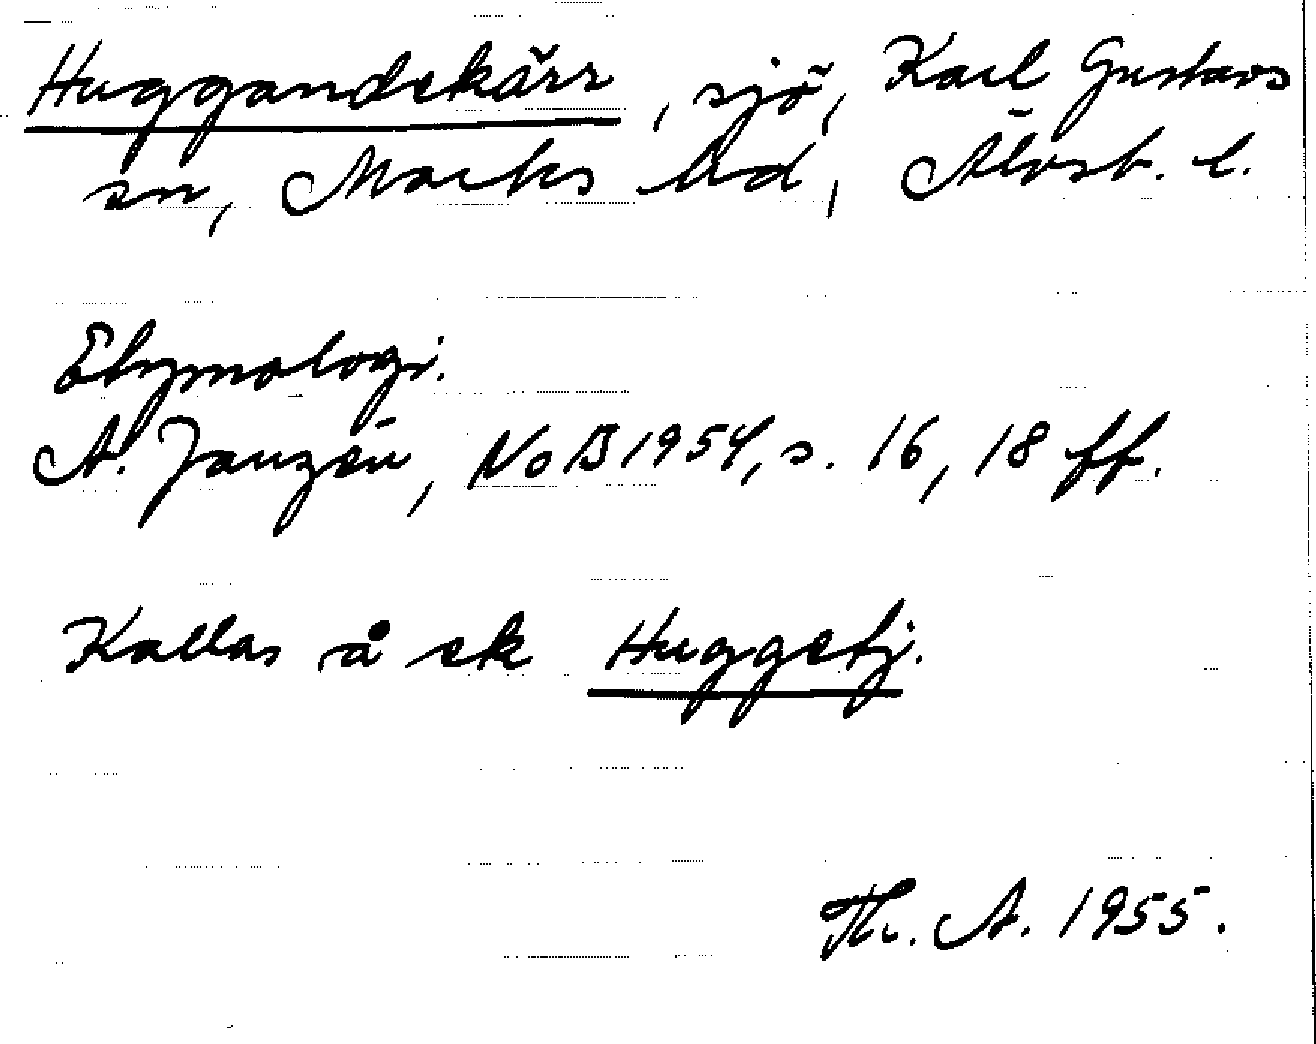 Huggandskärr, sjö, Karl Gustavs
sn, Marks hd, Älvsb. l.
Etymologi.
A. Janzén, NoB 1954, s. 16, 18 ff.
Kallas å ek Huggetj.
Th. A. 1955.